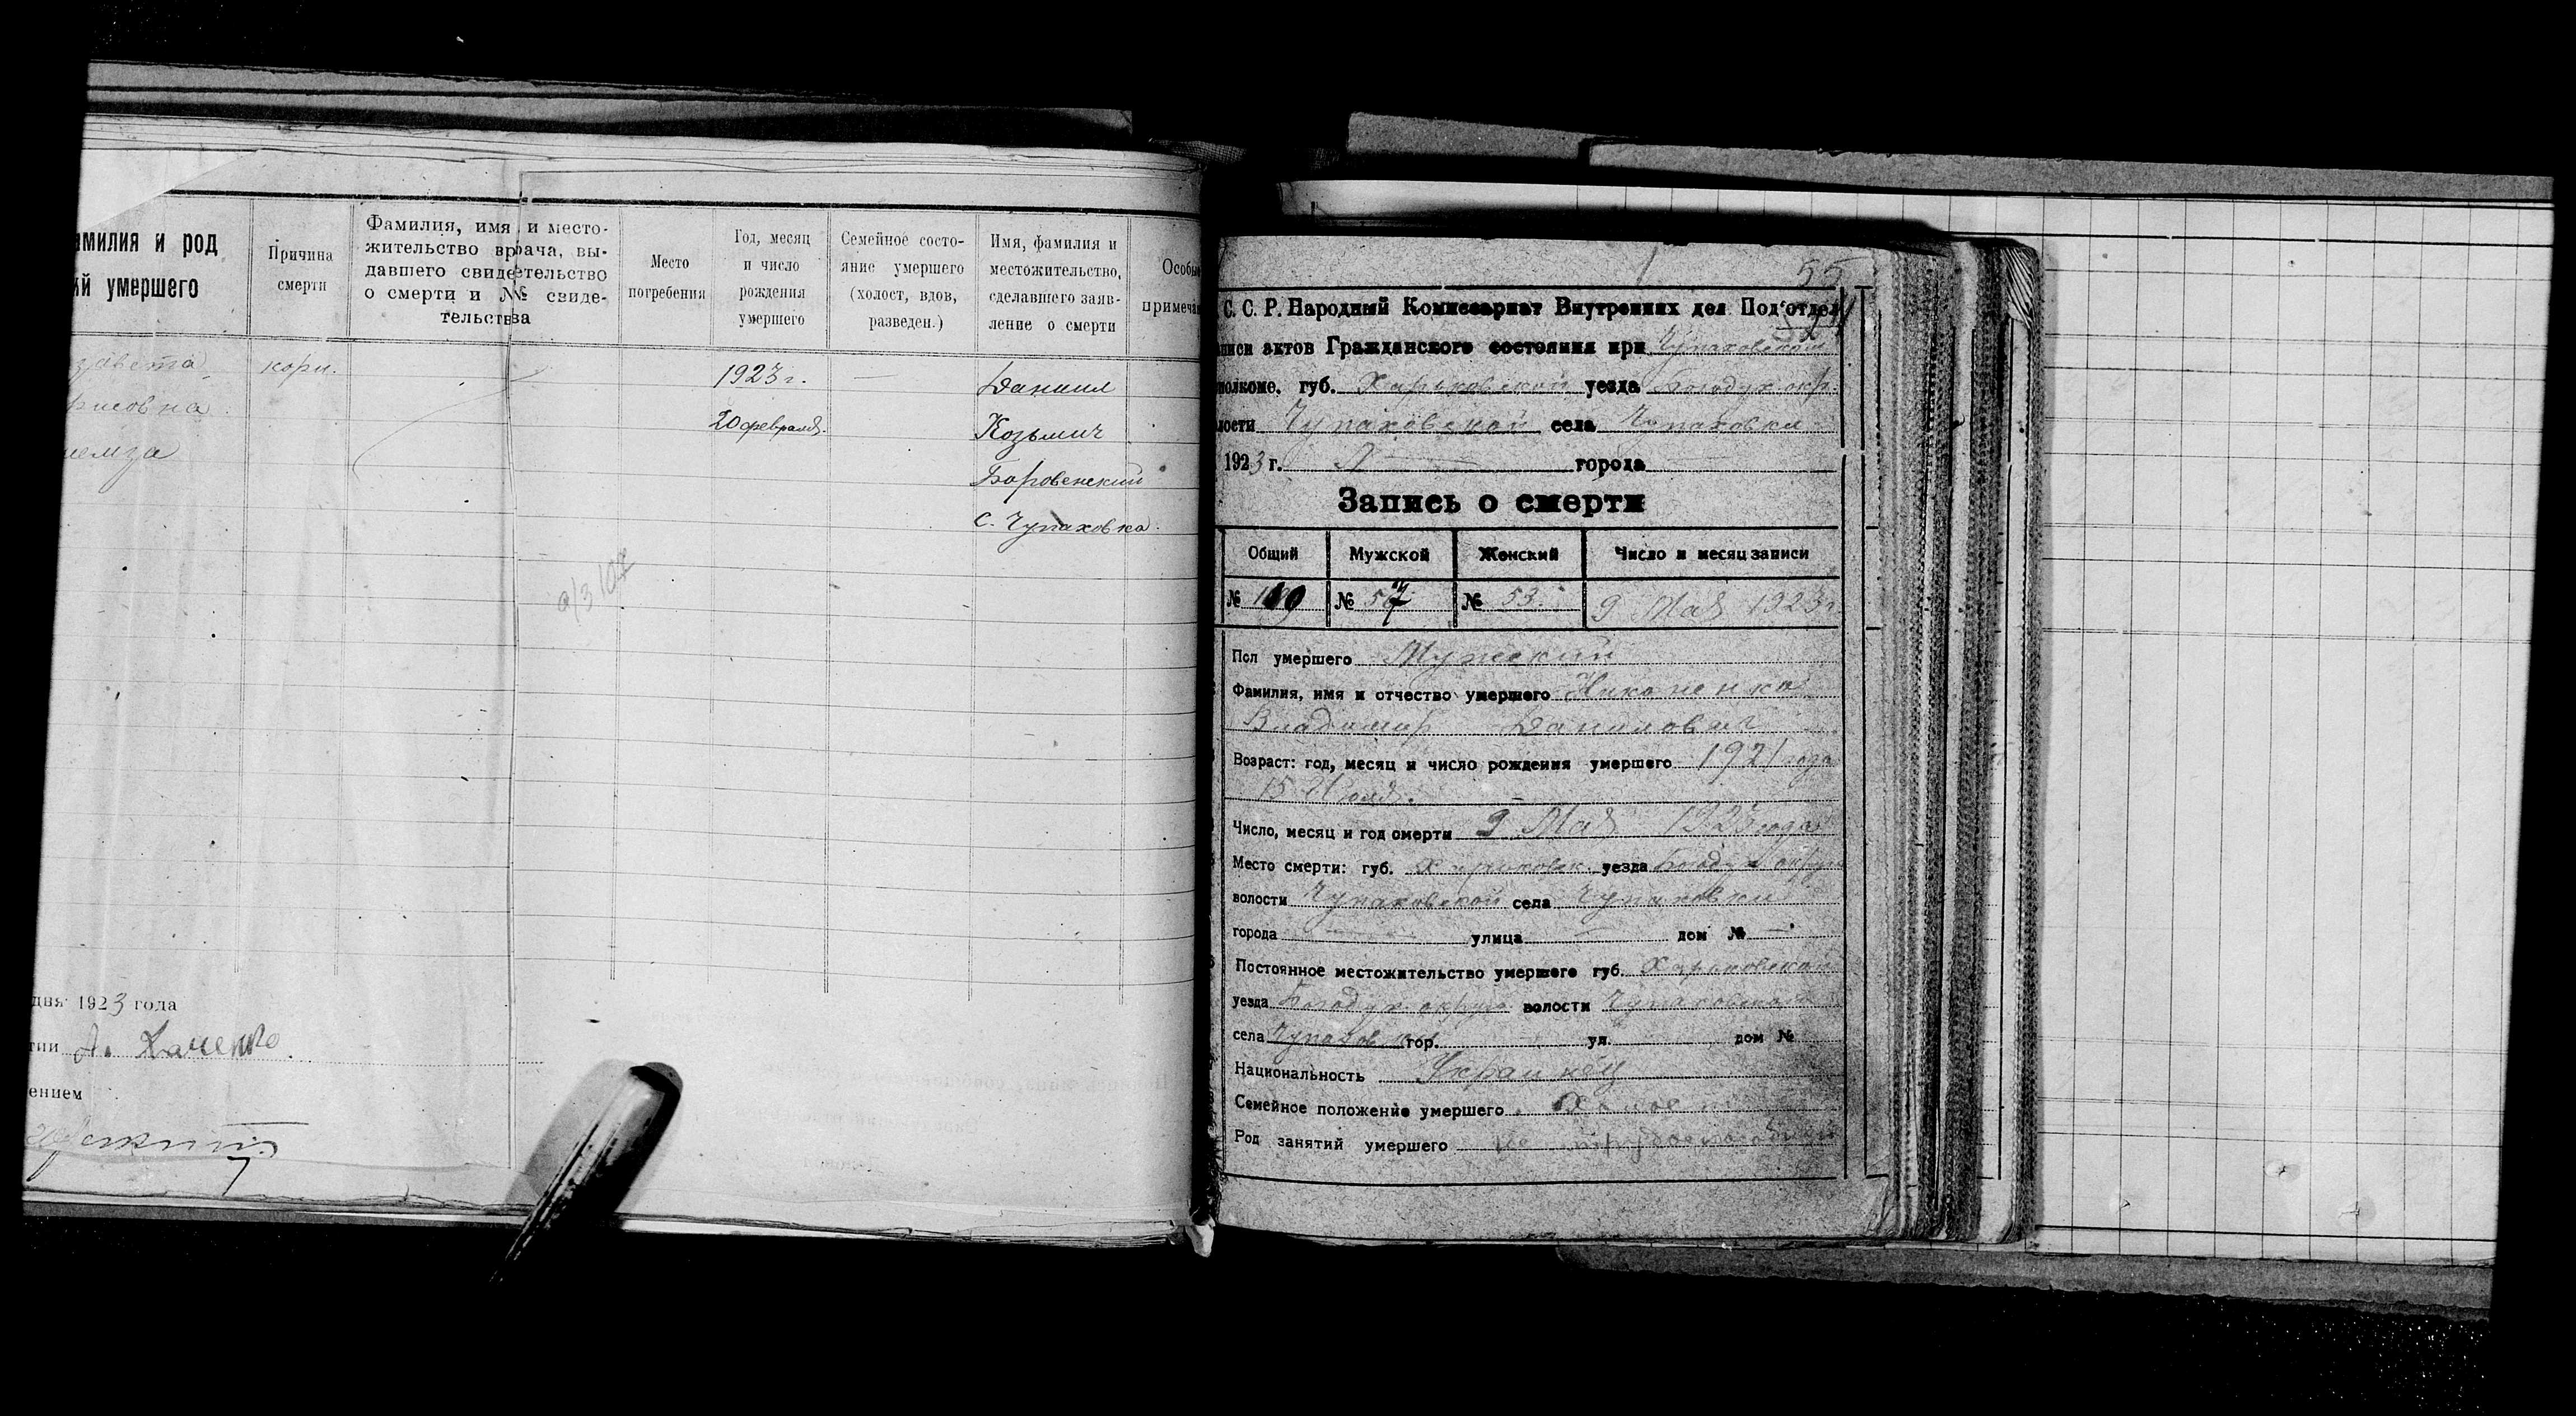 амилия и род
ий умершего
Причина
смерти
Фамилия, имя и место-
жительство врача, вы-
давшего свидетельство
о смерти и № свиде-
тельства
Место
погребения
Год, месяц
и число
рождения
умершего
Семейное состо-
яние умершего
(холост, вдов,
разведен.)
Имя, фамилия и
местожительство,
сделавшего заяв-
ление о смерти
Особые
примеча
завета
рисовна
кори.
1923 г.
20 февраля.
Даниил
Козьмич
Боровенский
с. Чупаховка.
дня 1923 года
ении
55
С. С. Р. Народный Комиссариат Внутренних дел Под'отдел
аписи актов Гражданского состояния при Чупаховском
полкоме, губ. Харьковской уезда Богодух. окр.
лости Чупаховской села Чупаховки
1923 г. города
Запись о смерти
Общий Мужской Женский Число и месяц записи
№ № 57 № 53. 9 Мая 1923 г.
Пол умершего Мужский
Фамилия, имя и отчество умершего Никоненко
Владимир Данилович
Возраст: год, месяц и число рождения умершего 1921 года
15 Июля.
Число, месяц и год смерти 9 Мая 1923 года
Место смерти: губ. Харьковск. уезда Богодух округ
волости Чупаховской села Чупаховки
города улица дом №
Постоянное местожительство умершего губ. Харьковской
уезда Богодух. округа волости Чупаховской
села Чупаховки гор. ул. дом №
Национальность Украинец
Семейное положение умершего Холост
Род занятий умершего не